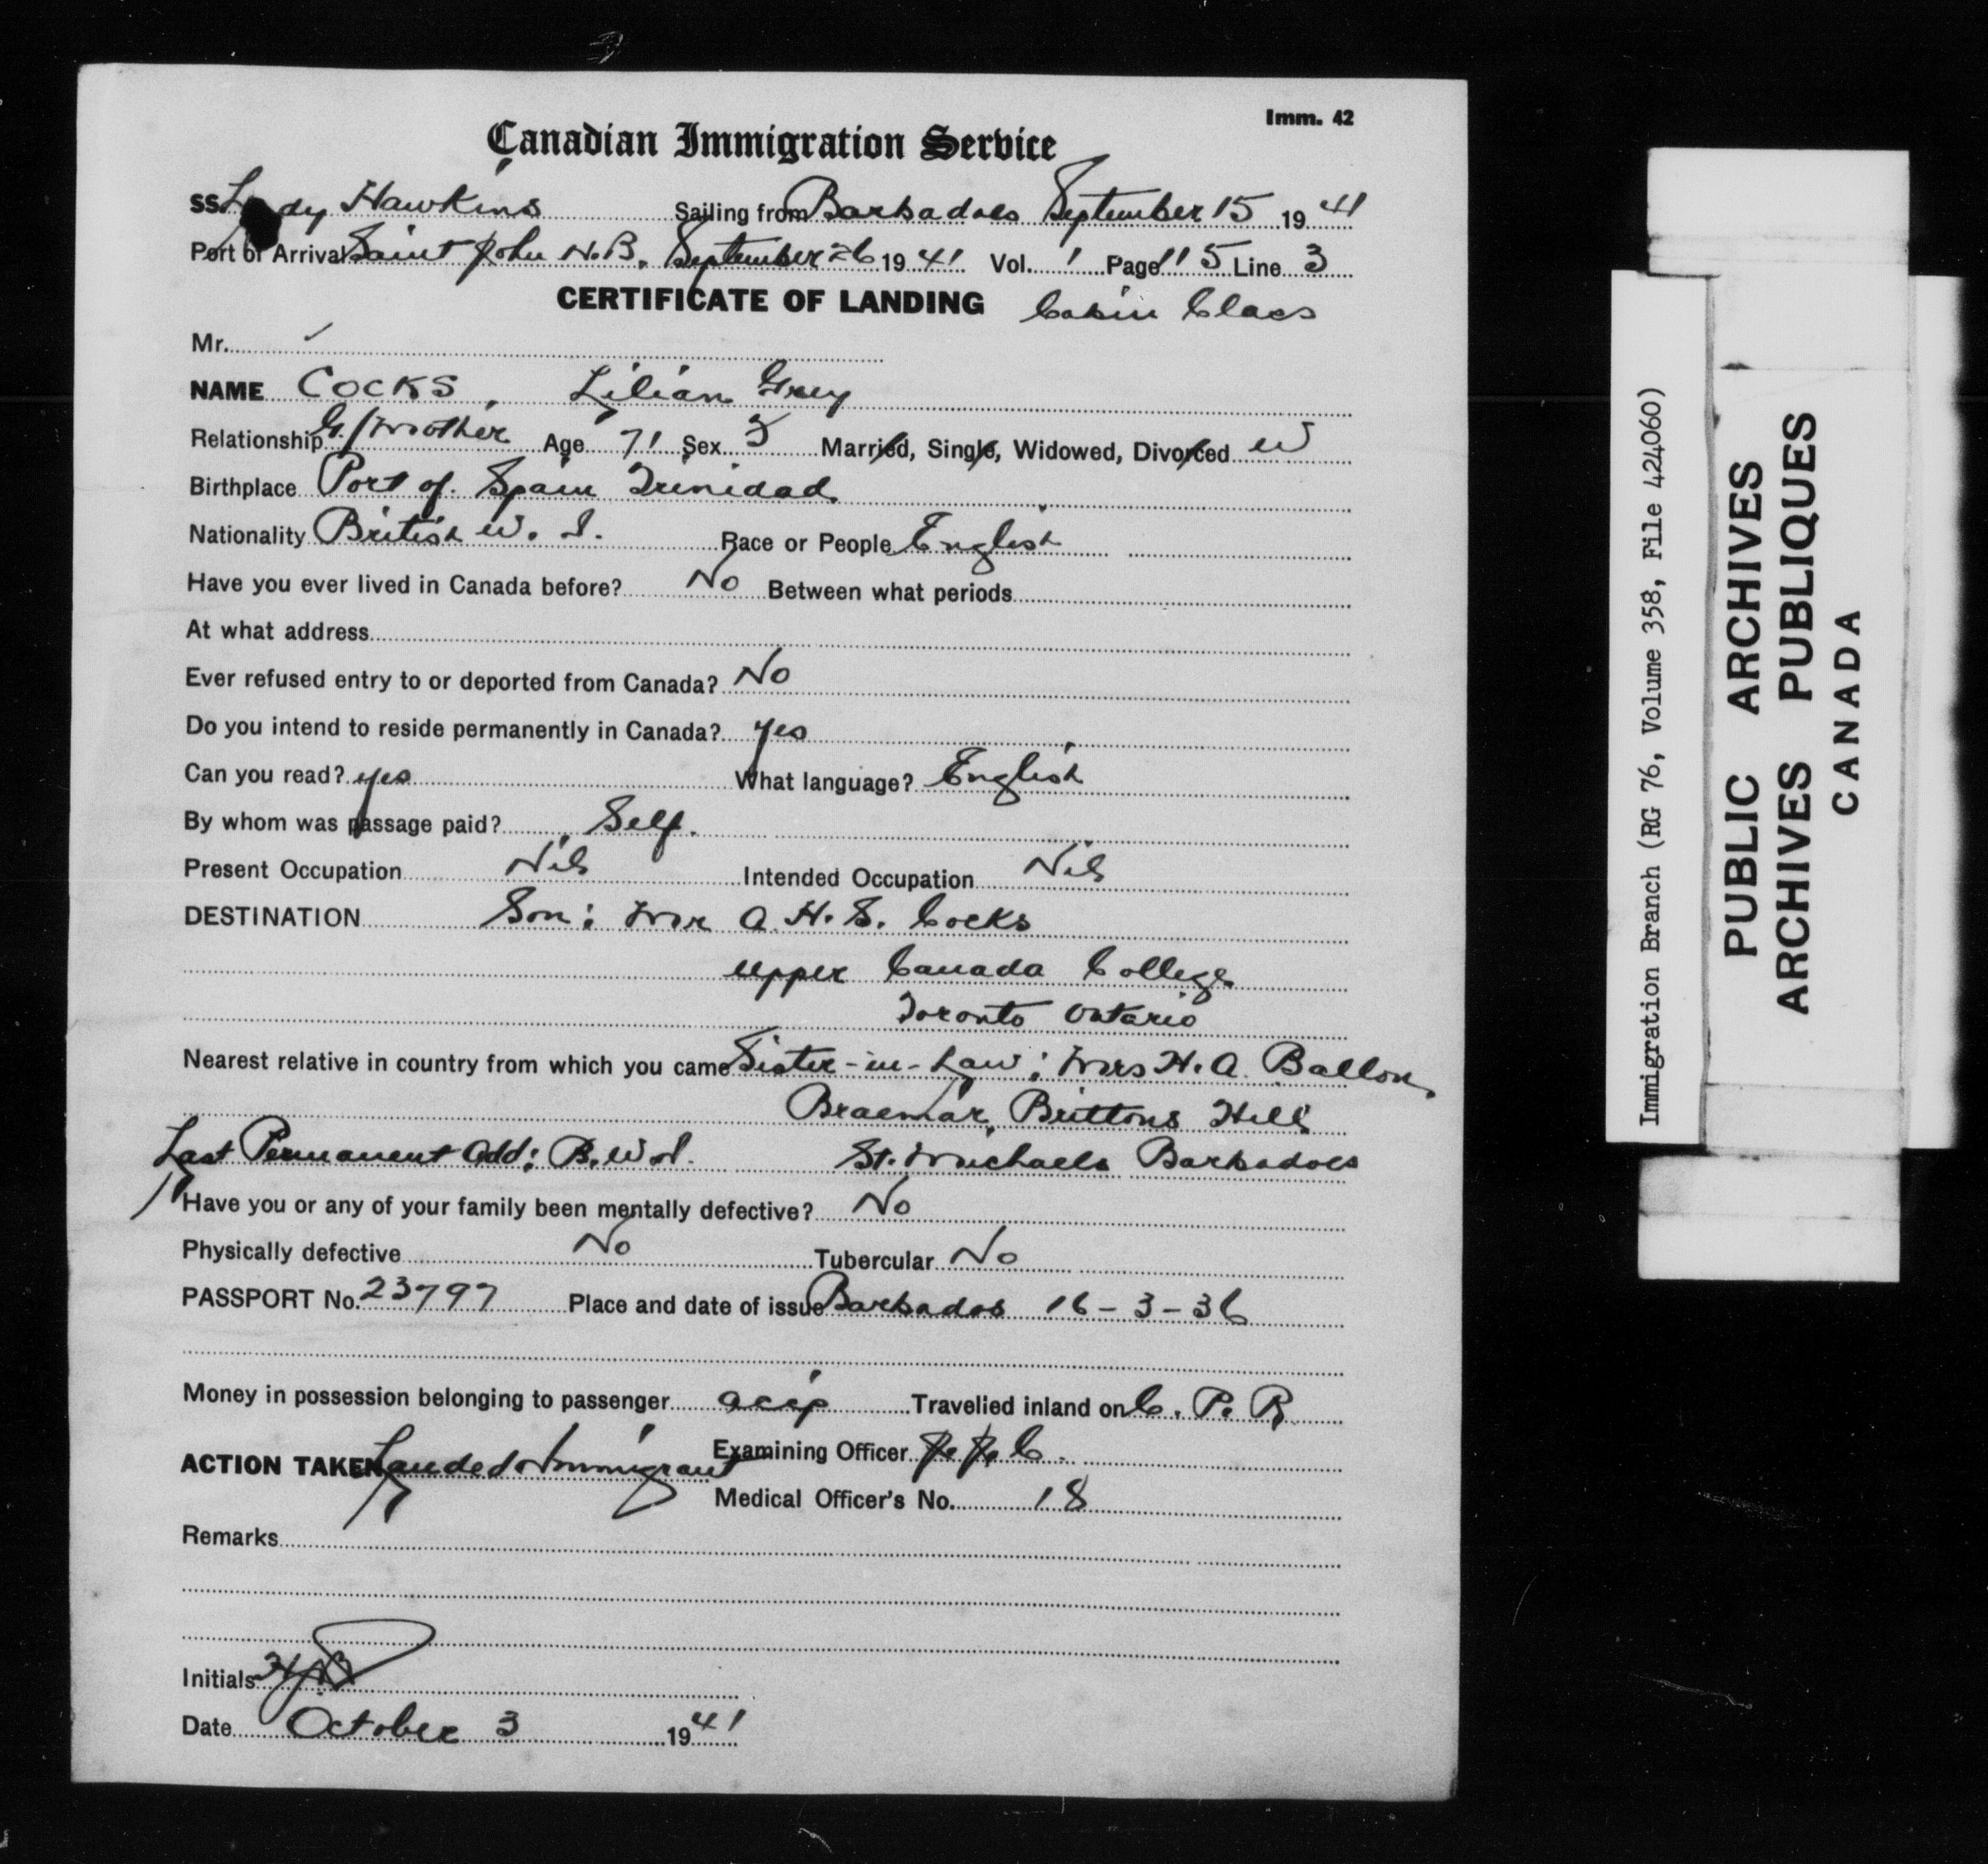 Imm. 42
Canadian Immigration Service
SS Lady Hawkins Sailing from Barbados September 15 1941
Port of Arrival Saint John N.B. September 26 1941 Vol. 1 Page 115 Line 3
CERTIFICATE OF LANDING Cabin Class
Mr.
NAME COCKS, Lilian Grey
Relationship G/Mother Age 71 Sex F Married, Single, Widowed, Divorced W
Birthplace Port of Spain Trinidad
Nationality British W. I. Race or People English
Have you ever lived in Canada before? No Between what periods
At what address
Ever refused entry to or deported from Canada? No
Do you intend to reside permanently in Canada? yes
Can you read? yes What language? English
By whom was passage paid? Self.
Present Occupation Nil Intended Occupation Nil
DESTINATION Son: Mr A. H. S. Cocks
Upper Canada College
Toronto Ontario
Nearest relative in country from which you came Sister-in-Law: Mrs H. A. Ballon,
Braemar, Brittons Hill
Last Permanent Add: B.W.I. St. Michaels Barbados
Have you or any of your family been mentally defective? No
Physically defective No Tubercular No
PASSPORT No. 23797 Place and date of issue Barbados 16-3-36
Money in possession belonging to passenger Travelled inland on C. P. R.
ACTION TAKEN Landed Immigrant Examining Officer J. J. C.
Medical Officer's No. 18
Remarks
Initials
Date October 3 1941
Immigration Branch (RG 76, Volume 358, File 424060)
PUBLIC ARCHIVES
ARCHIVES PUBLIQUES
CANADA